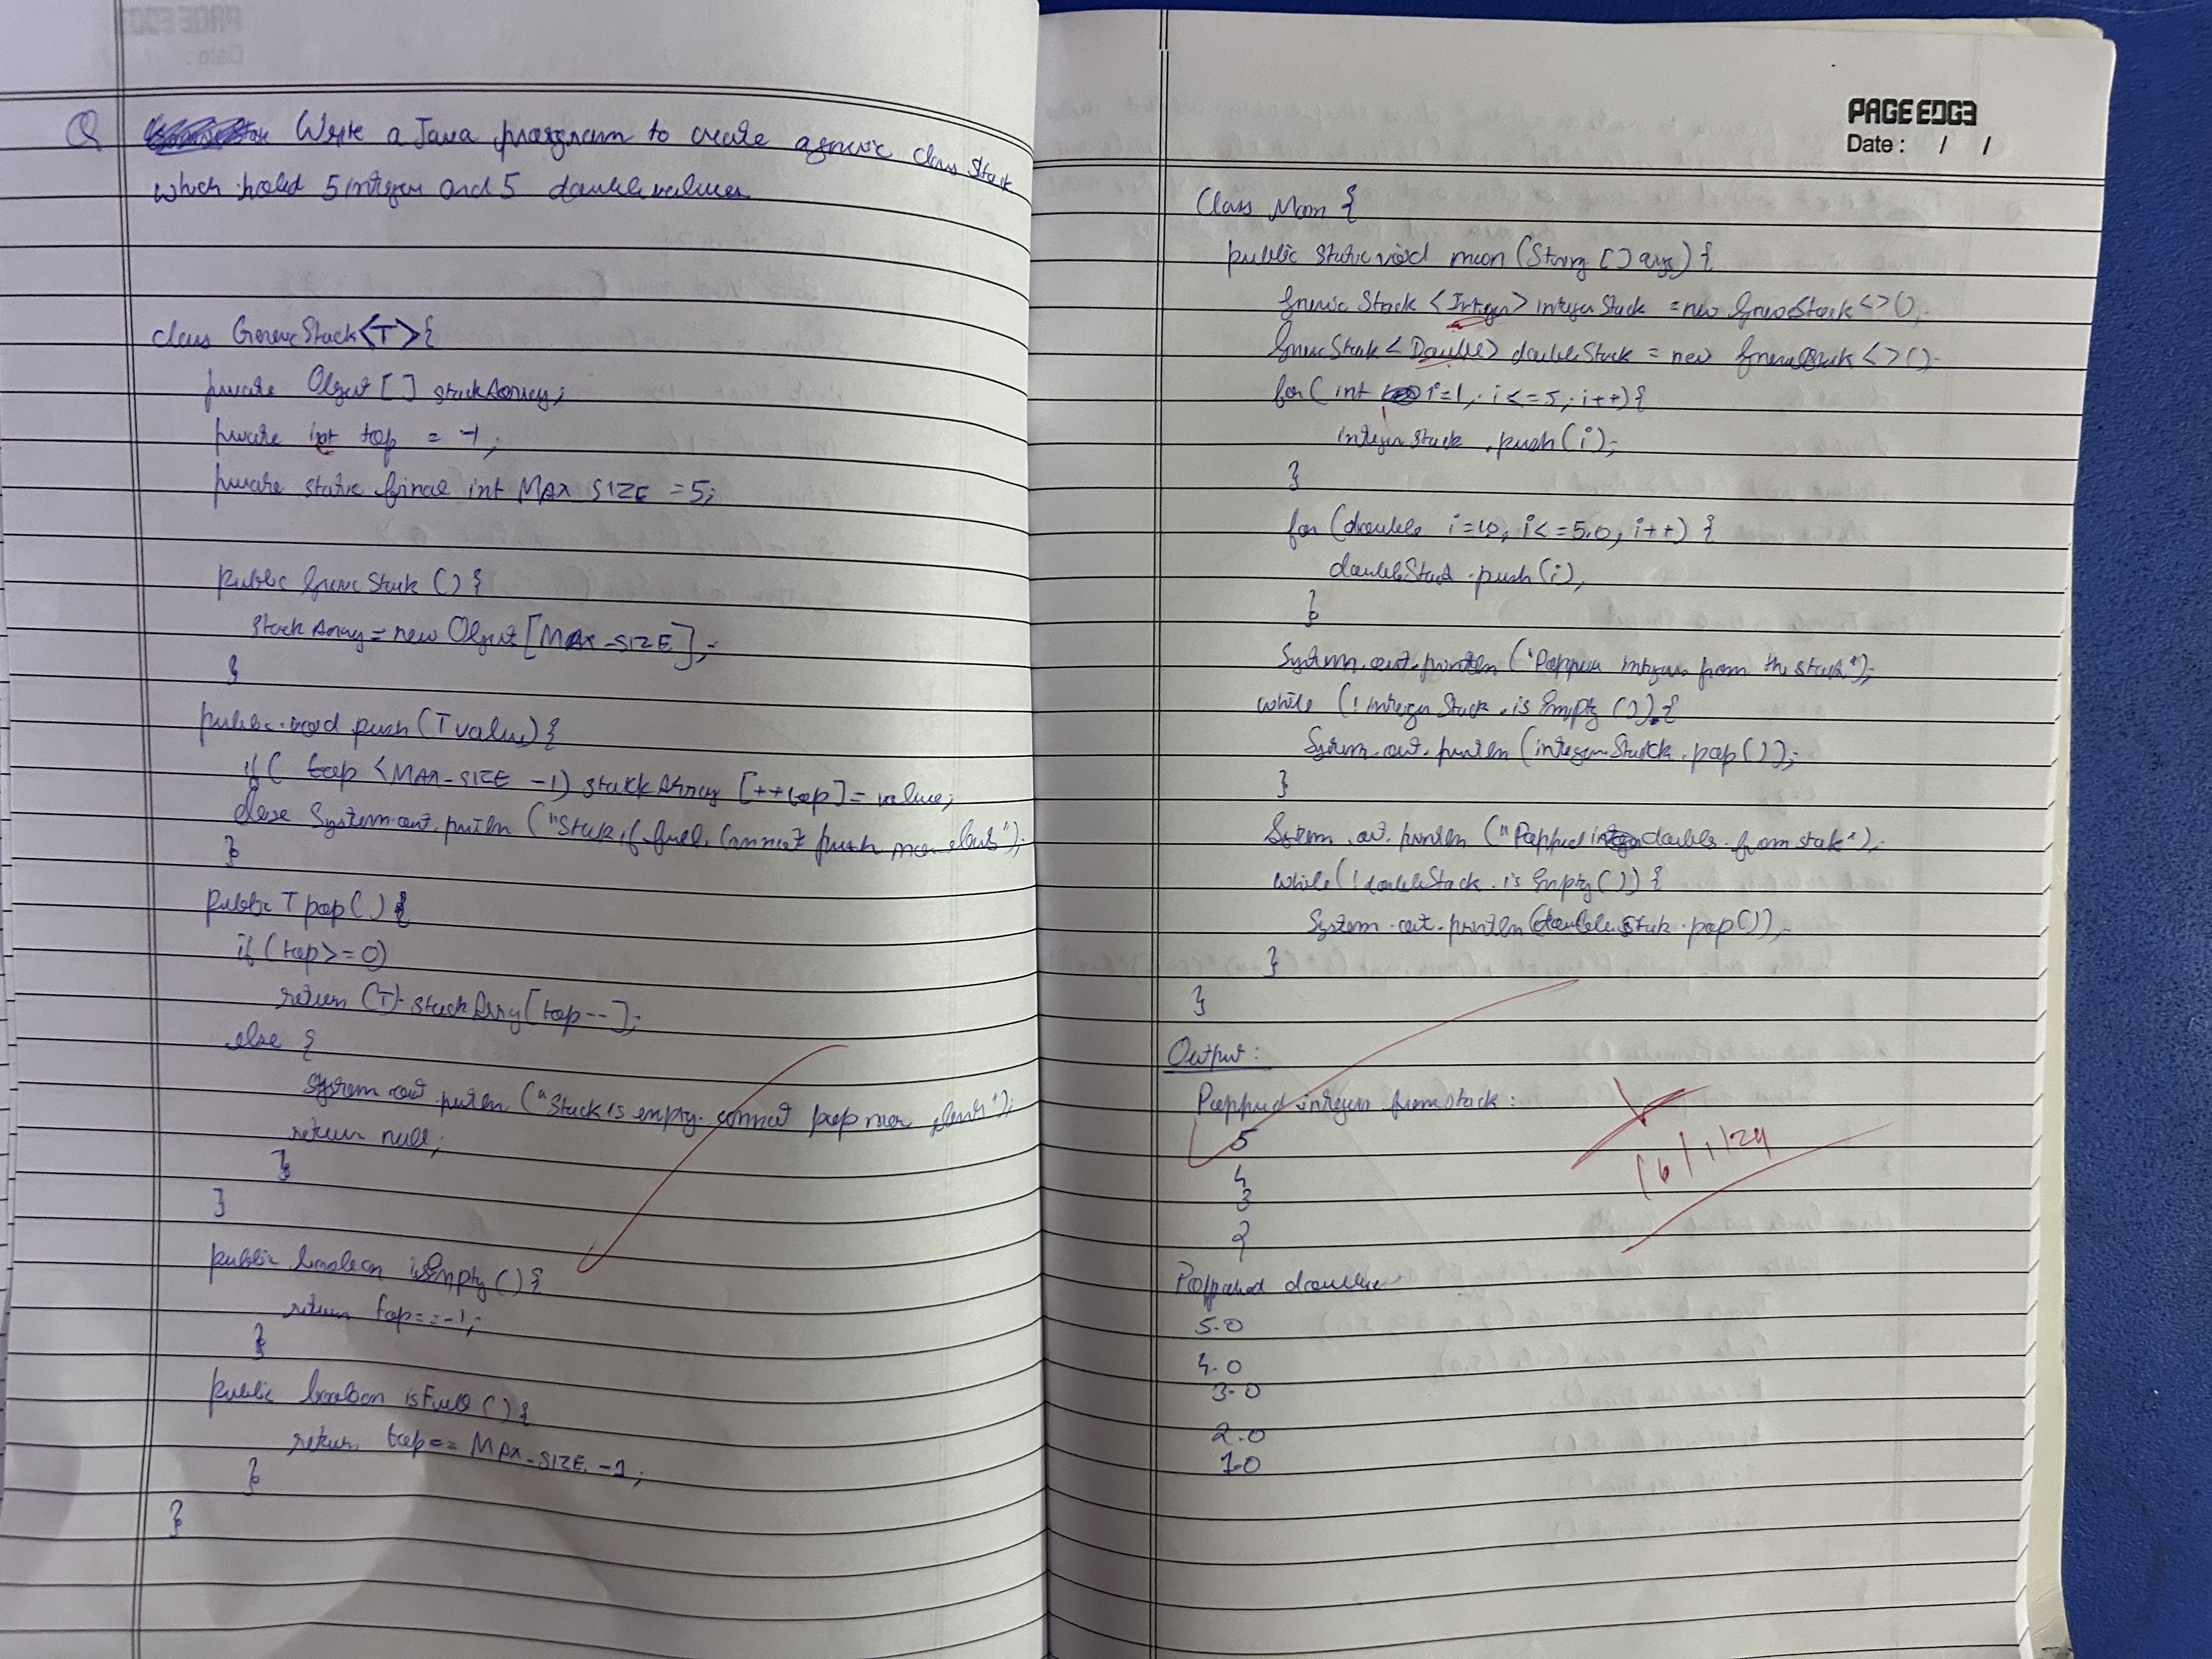 Q Write a Java program to create a generic class Stack
which hold 5 integer and 5 double values
class GenericStack<T>{
private Object [ ] stackArray;
private int top = -1;
private static final int MAX SIZE = 5;
public GenericStack () {
stackArray = new Object [MAX-SIZE];
}
public void push (T value) {
if ( top < MAX-SIZE -1) stackArray [++top] = value;
else System.out.println ("Stack if full. Cannot push more
}
public T pop ( ) {
if (top >= 0)
return (T) stackArray[top--];
else {
System out println ("Stack is empty. cannot pop more
return null;
}
}
public boolean isEmpty ( ) {
return top == -1;
}
public boolean isFull ( ) {
return top == MAX-SIZE -1;
}
}
PAGE EDGE
Date: / /
Class Main {
public static void main (String [ ] args) {
Generic Stack <Integer> integerStack = new GenericStack <> ();
GenericStack <Double> doubleStack = new GenericStack <> ();
for ( int i=1; i<=5; i++) {
integerStack . push (i);
}
for (double i=1.0, i<=5.0, i++) {
doubleStack . push (i),
}
System. out. println ("Popped integers from the stack");
while (!integerStack . is Empty ( ) ) {
System. out. println (integerStack. pop ( ) );
}
System. out. println ("Popped doubles from stack");
while (!doubleStack . is Empty ( ) ) {
System. out. println (doubleStack. pop ( ) );
}
}
Output :
Popped integers from stack :
5
4
3
2
Popped doubles
5.0
4.0
3.0
2.0
1.0
16/1/24